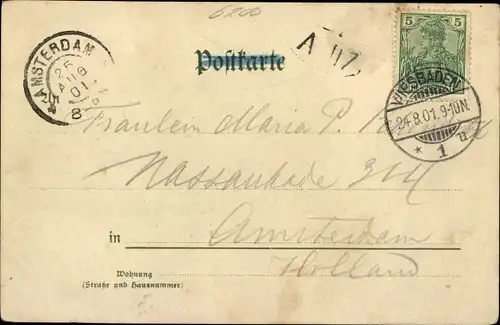 6200
AMSTERDAM
25
AUG
01
8
Postkarte
5 5
WIESBADEN
24.8.01.9-10N.
* 1 a
Fräulein Maria P.
Nassaukade 311
in Amsterdam
Holland
Wohnung
(Straße und Hausnummer)